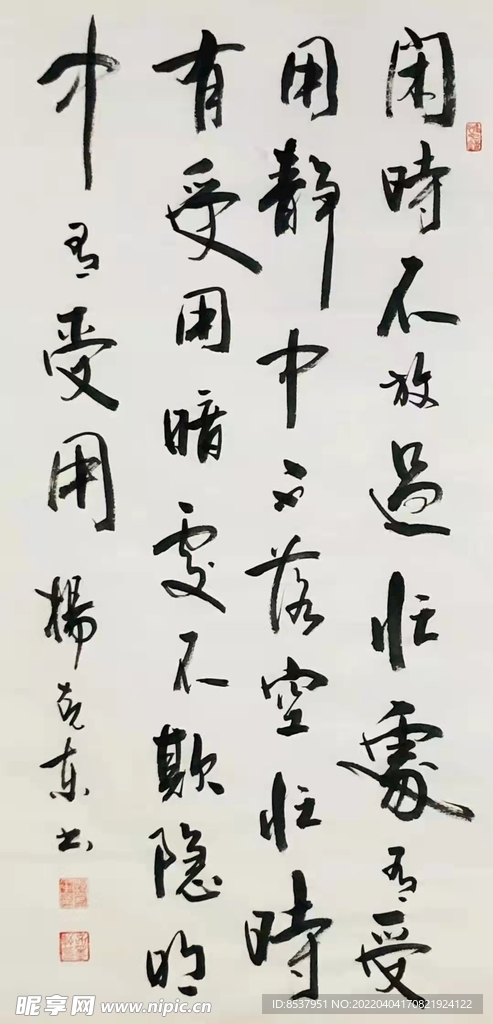 閑時不放過忙處有受
用静中不落空忙時
有受用暗處不欺隐明
中有受用
楊克東書
昵享网 www.nipic.cn
ID:8537951 NO:20220404170821924122